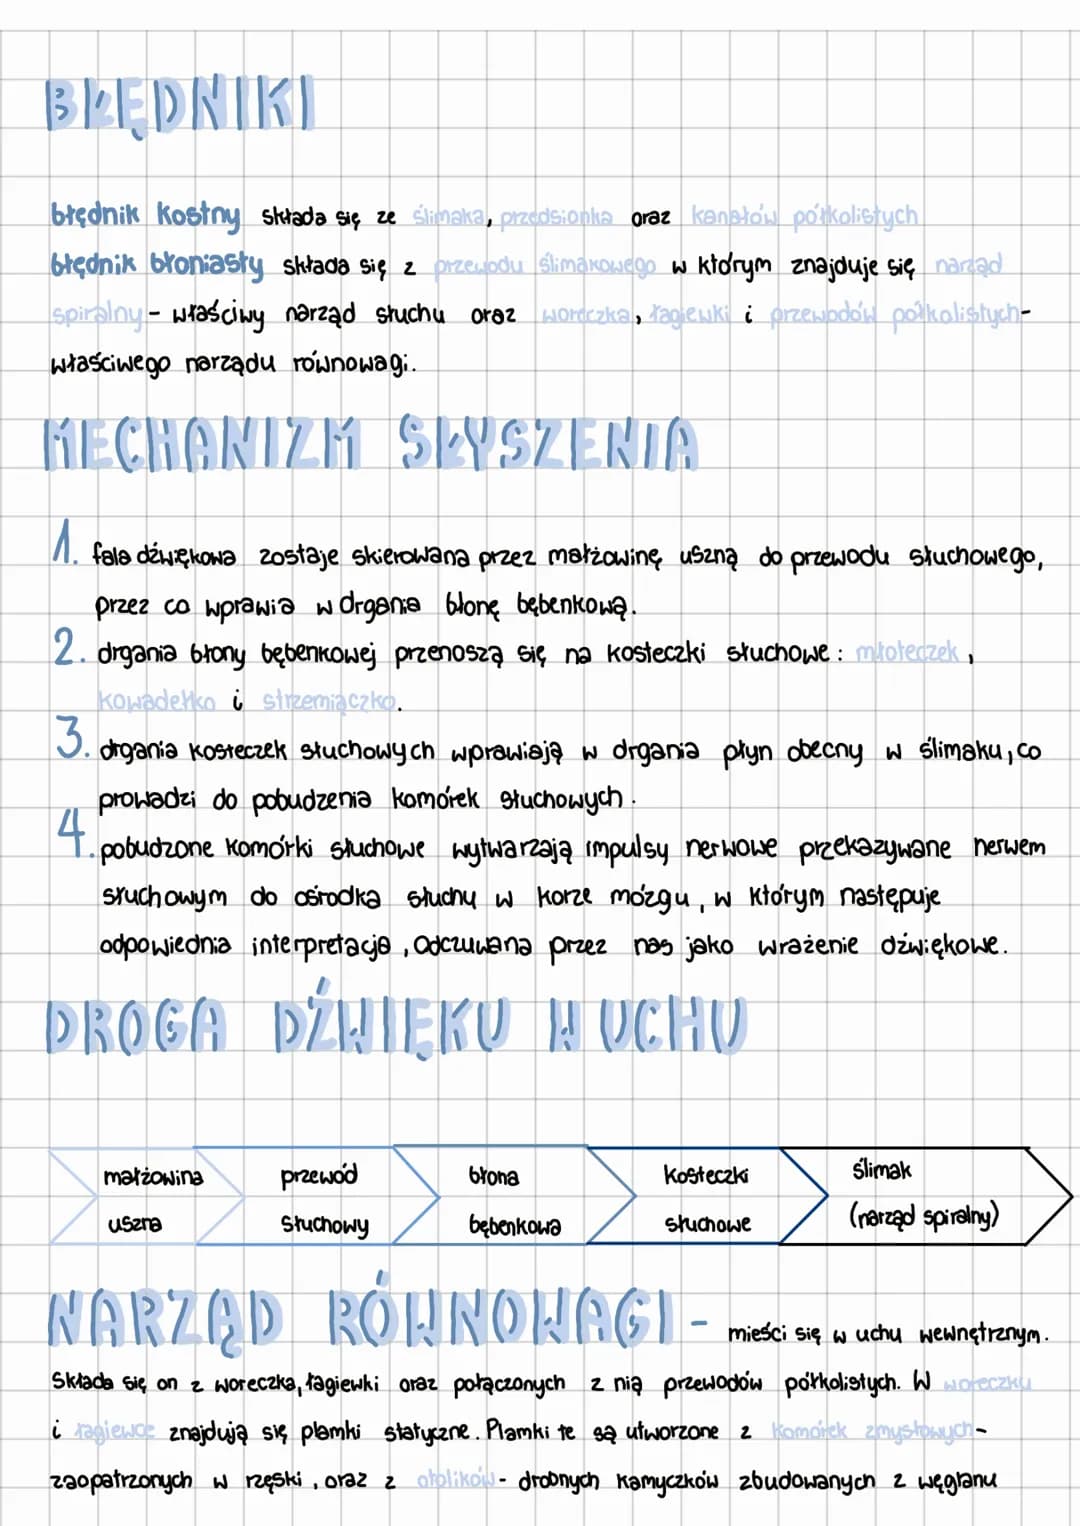 BŁĘDNIKI
błędnik kostny składa się ze ślimaka, przedsionka oraz kanałów półkolistych
błędnik błoniasty składa się z przewodu ślimakowego w którym znajduje się narząd
spiralny - właściwy narząd słuchu oraz woreczka, łagiewki i przewodów półkolistych -
właściwego narządu równowagi.
MECHANIZM SŁYSZENIA
1. fala dźwiękowa zostaje skierowana przez małżowinę uszną do przewodu słuchowego,
przez co wprawia w drgania błonę bębenkową.
2. drgania błony bębenkowej przenoszą się na kosteczki słuchowe: młoteczek,
kowadełko i strzemiączko.
3. drgania kosteczek słuchowych wprawiają w drgania płyn obecny w ślimaku, co
prowadzi do pobudzenia komórek słuchowych.
4. pobudzone komórki słuchowe wytwarzają impulsy nerwowe przekazywane nerwem
słuchowym do ośrodka słuchu w korze mózgu, w którym następuje
odpowiednia interpretacja, odczuwana przez nas jako wrażenie dźwiękowe.
DROGA DŹWIĘKU W UCHU
małżowina uszna
przewód słuchowy
błona bębenkowa
kosteczki słuchowe
ślimak (narząd spiralny)
NARZĄD RÓWNOWAGI - mieści się w uchu wewnętrznym.
Składa się on z woreczka, łagiewki oraz połączonych z nią przewodów półkolistych. W woreczku
i łagiewce znajdują się plamki statyczne. Plamki te są utworzone z komórek zmysłowych -
zaopatrzonych w rzęski, oraz z otolików - drobnych kamyczków zbudowanych z węglanu